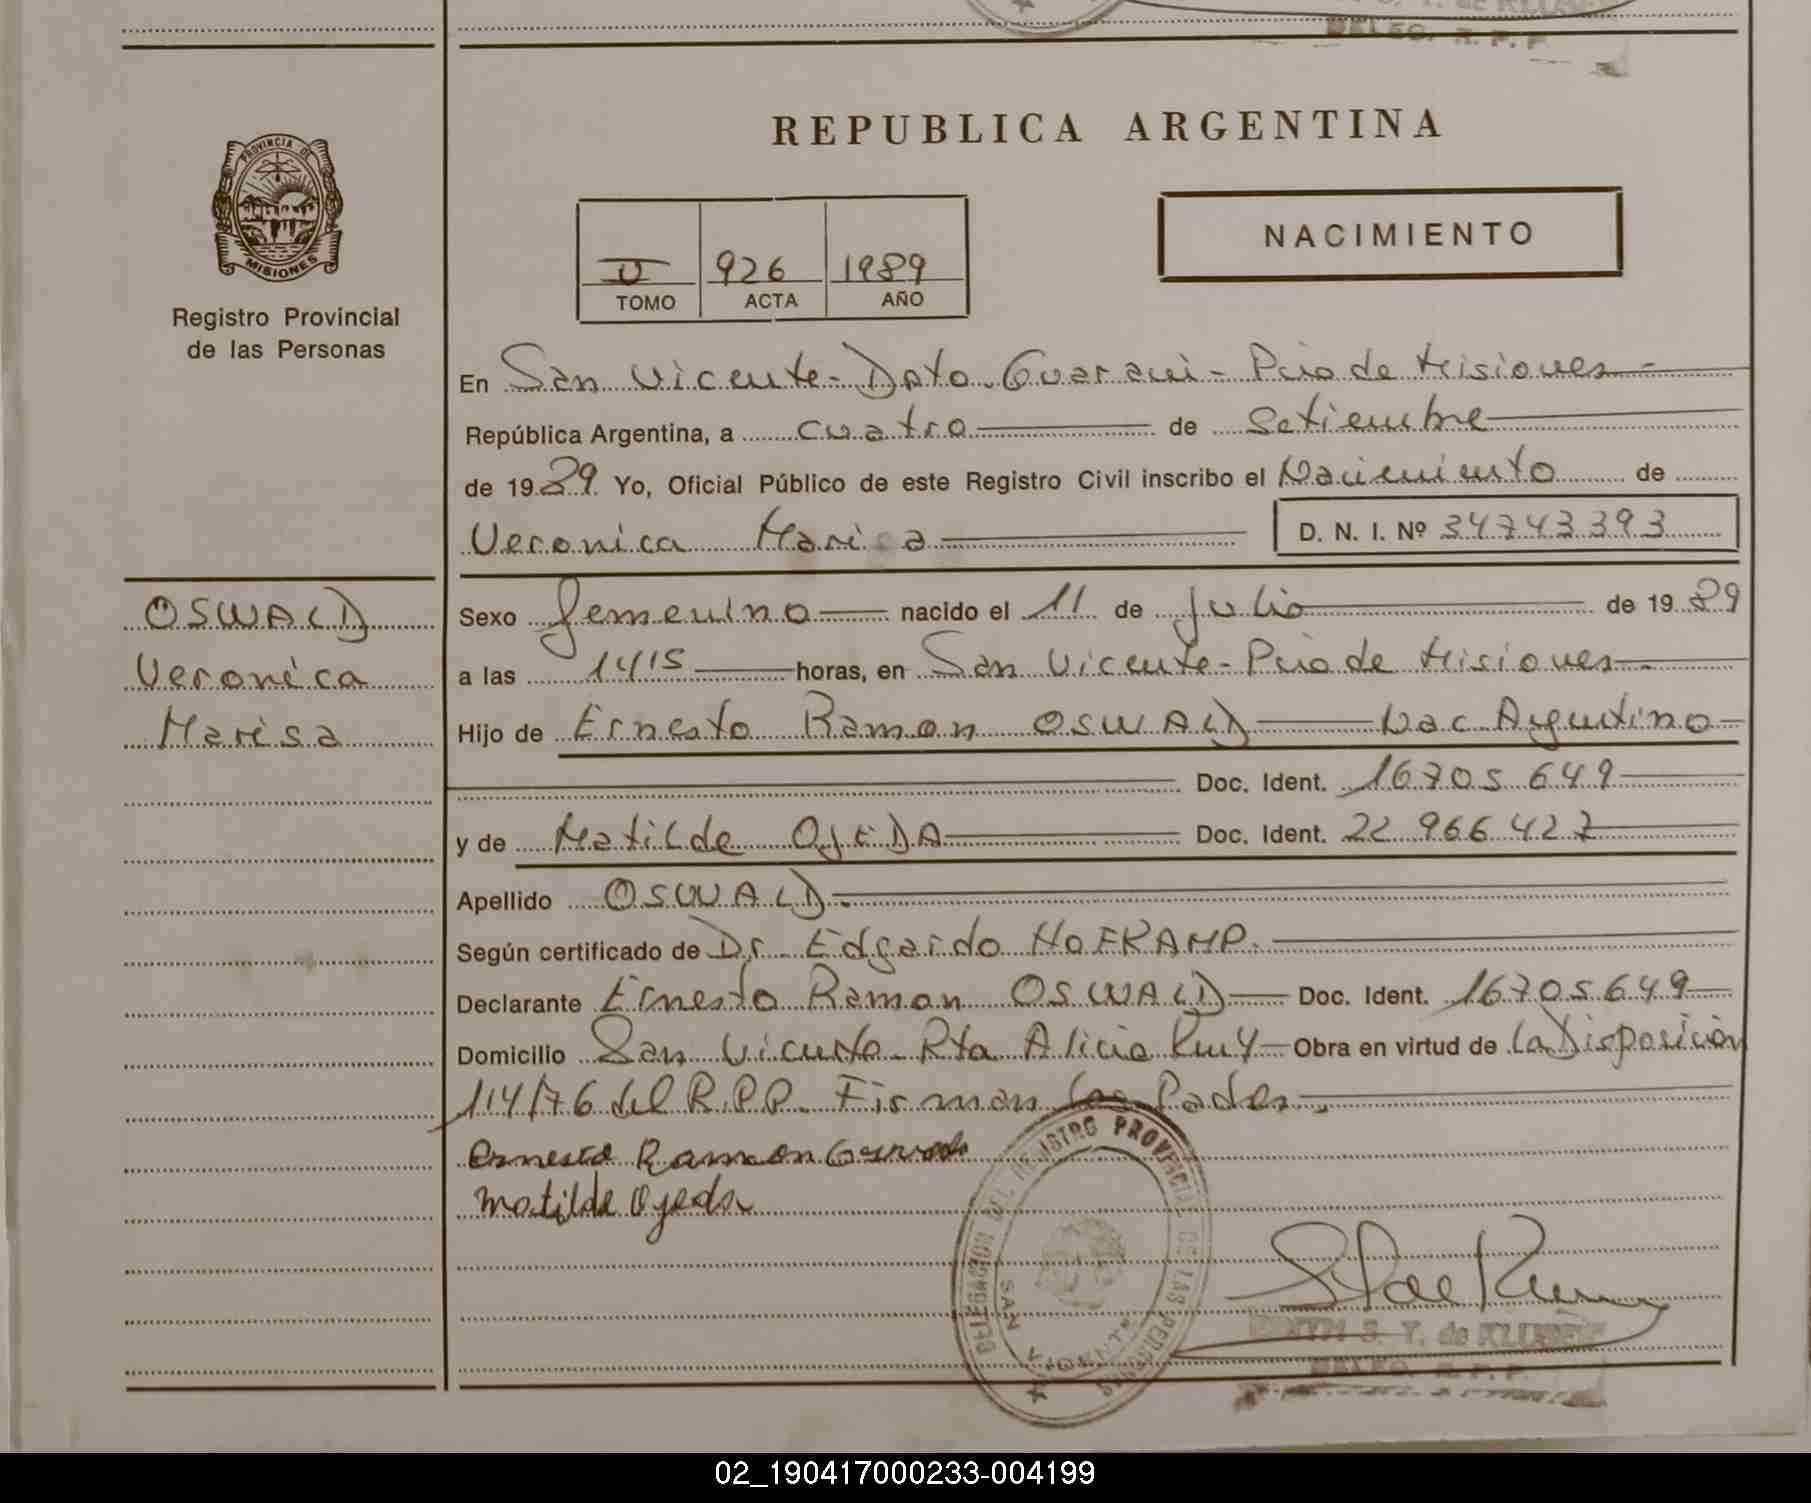 DELEG. R. P. P.
REPUBLICA ARGENTINA
PROVINCIA DE
MISIONES
Registro Provincial
de las Personas
926 1989
TOMO ACTA AÑO
NACIMIENTO
En San Vicente - Dpto. Guarani - Pcia de Misiones -
República Argentina, a cuatro de Setiembre
de 1989 Yo, Oficial Público de este Registro Civil inscribo el Nacimiento de
Veronica Marisa D. N. I. Nº 34743393
OSWALD
Veronica
Marisa
Sexo femenino nacido el 11 de Julio de 1989
a las 1415 horas, en San Vicente - Pcia de Misiones -
Hijo de Ernesto Ramon OSWALD Nac Argentino
Doc. Ident. 16705649
y de Matilde OJEDA Doc. Ident. 22 966 427
Apellido OSWALD.
Según certificado de Dr. Edgardo HOFKAMP.
Declarante Ernesto Ramon OSWALD Doc. Ident. 16705649
Domicilio San Vicente Rta Alicia Obra en virtud de La Disposición
114/76 del R.P.P. Firman los Padres.
Ernesto Ramon
Matilde Ojeda
DELEGACION DEL REGISTRO PROVINCIAL DE LAS PERSONAS
SAN VICENTE
S. T. de
DELEG. R. P. P.
02_190417000233-004199